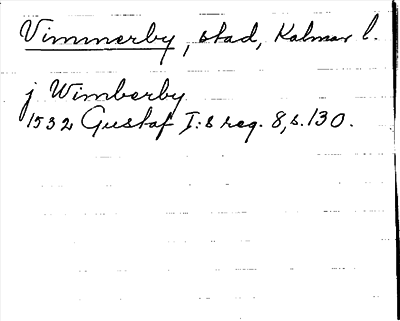 Vimmerby, stad, Kalmar l.
j Wimberby
1532 Gustaf I:s reg. 8, s. 130.